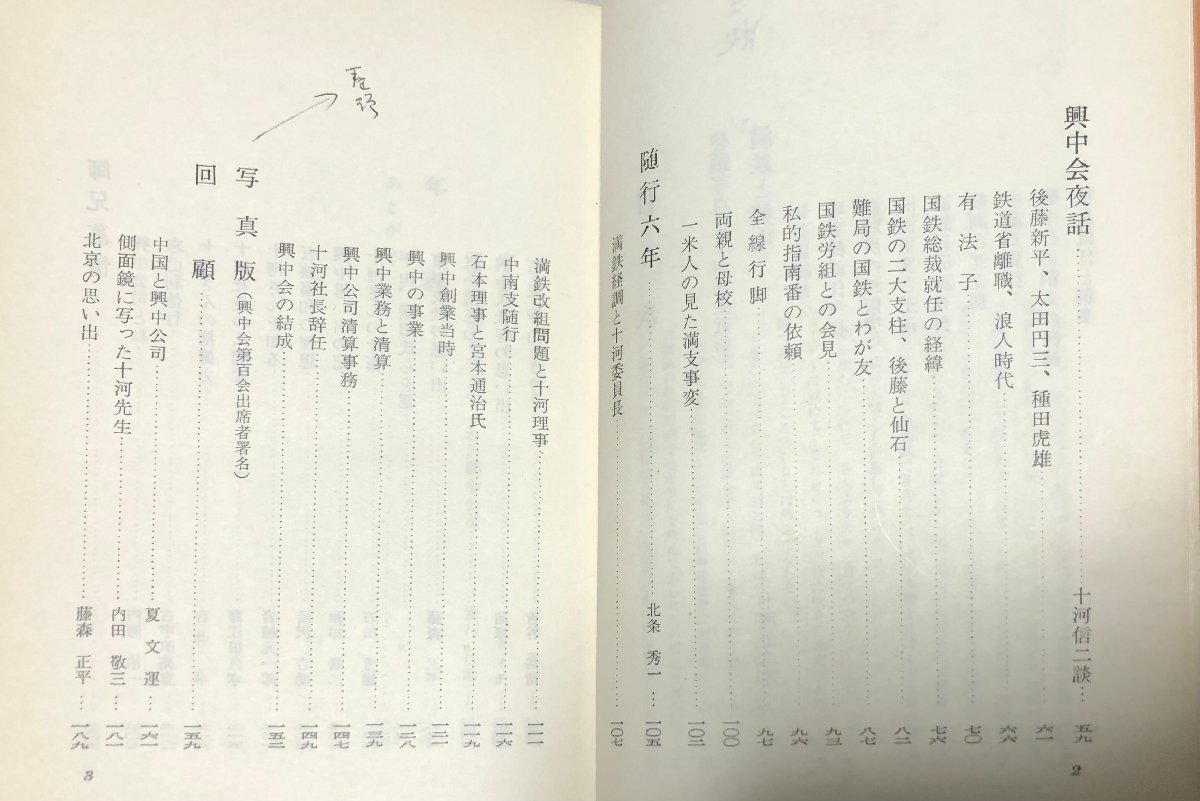 興中会夜話……十河信二談…五九
後藤新平、太田円三、種田虎雄……六一
鉄道省離職、浪人時代……六六
有法子……七〇
国鉄総裁就任の経緯……七六
国鉄の二大支柱、後藤と仙石……八二
難局の国鉄とわが友……八七
国鉄労組との会見……九三
私的指南番の依頼……九六
全線行脚……九七
両親と母校……一〇〇
一米人の見た満支事変……一〇二
随行六年……北条 秀一…一〇五
満鉄経調と十河委員長……一〇七
2
満鉄改組問題と十河理事……一一一
中南支随行……一一六
石本理事と宮本通治氏……一一九
興中創業当時……一二一
興中の事業……一二八
興中業務と清算……一三九
興中公司清算事務……一四七
十河社長辞任……一四九
興中会の結成……一五二
写真版(興中会第百会出席者署名)
回顧……一五九
中国と興中公司……夏 文運…一六一
側面鏡に写った十河先生……内田 敬三…一八一
北京の思い出……藤森 正平…一八九
3